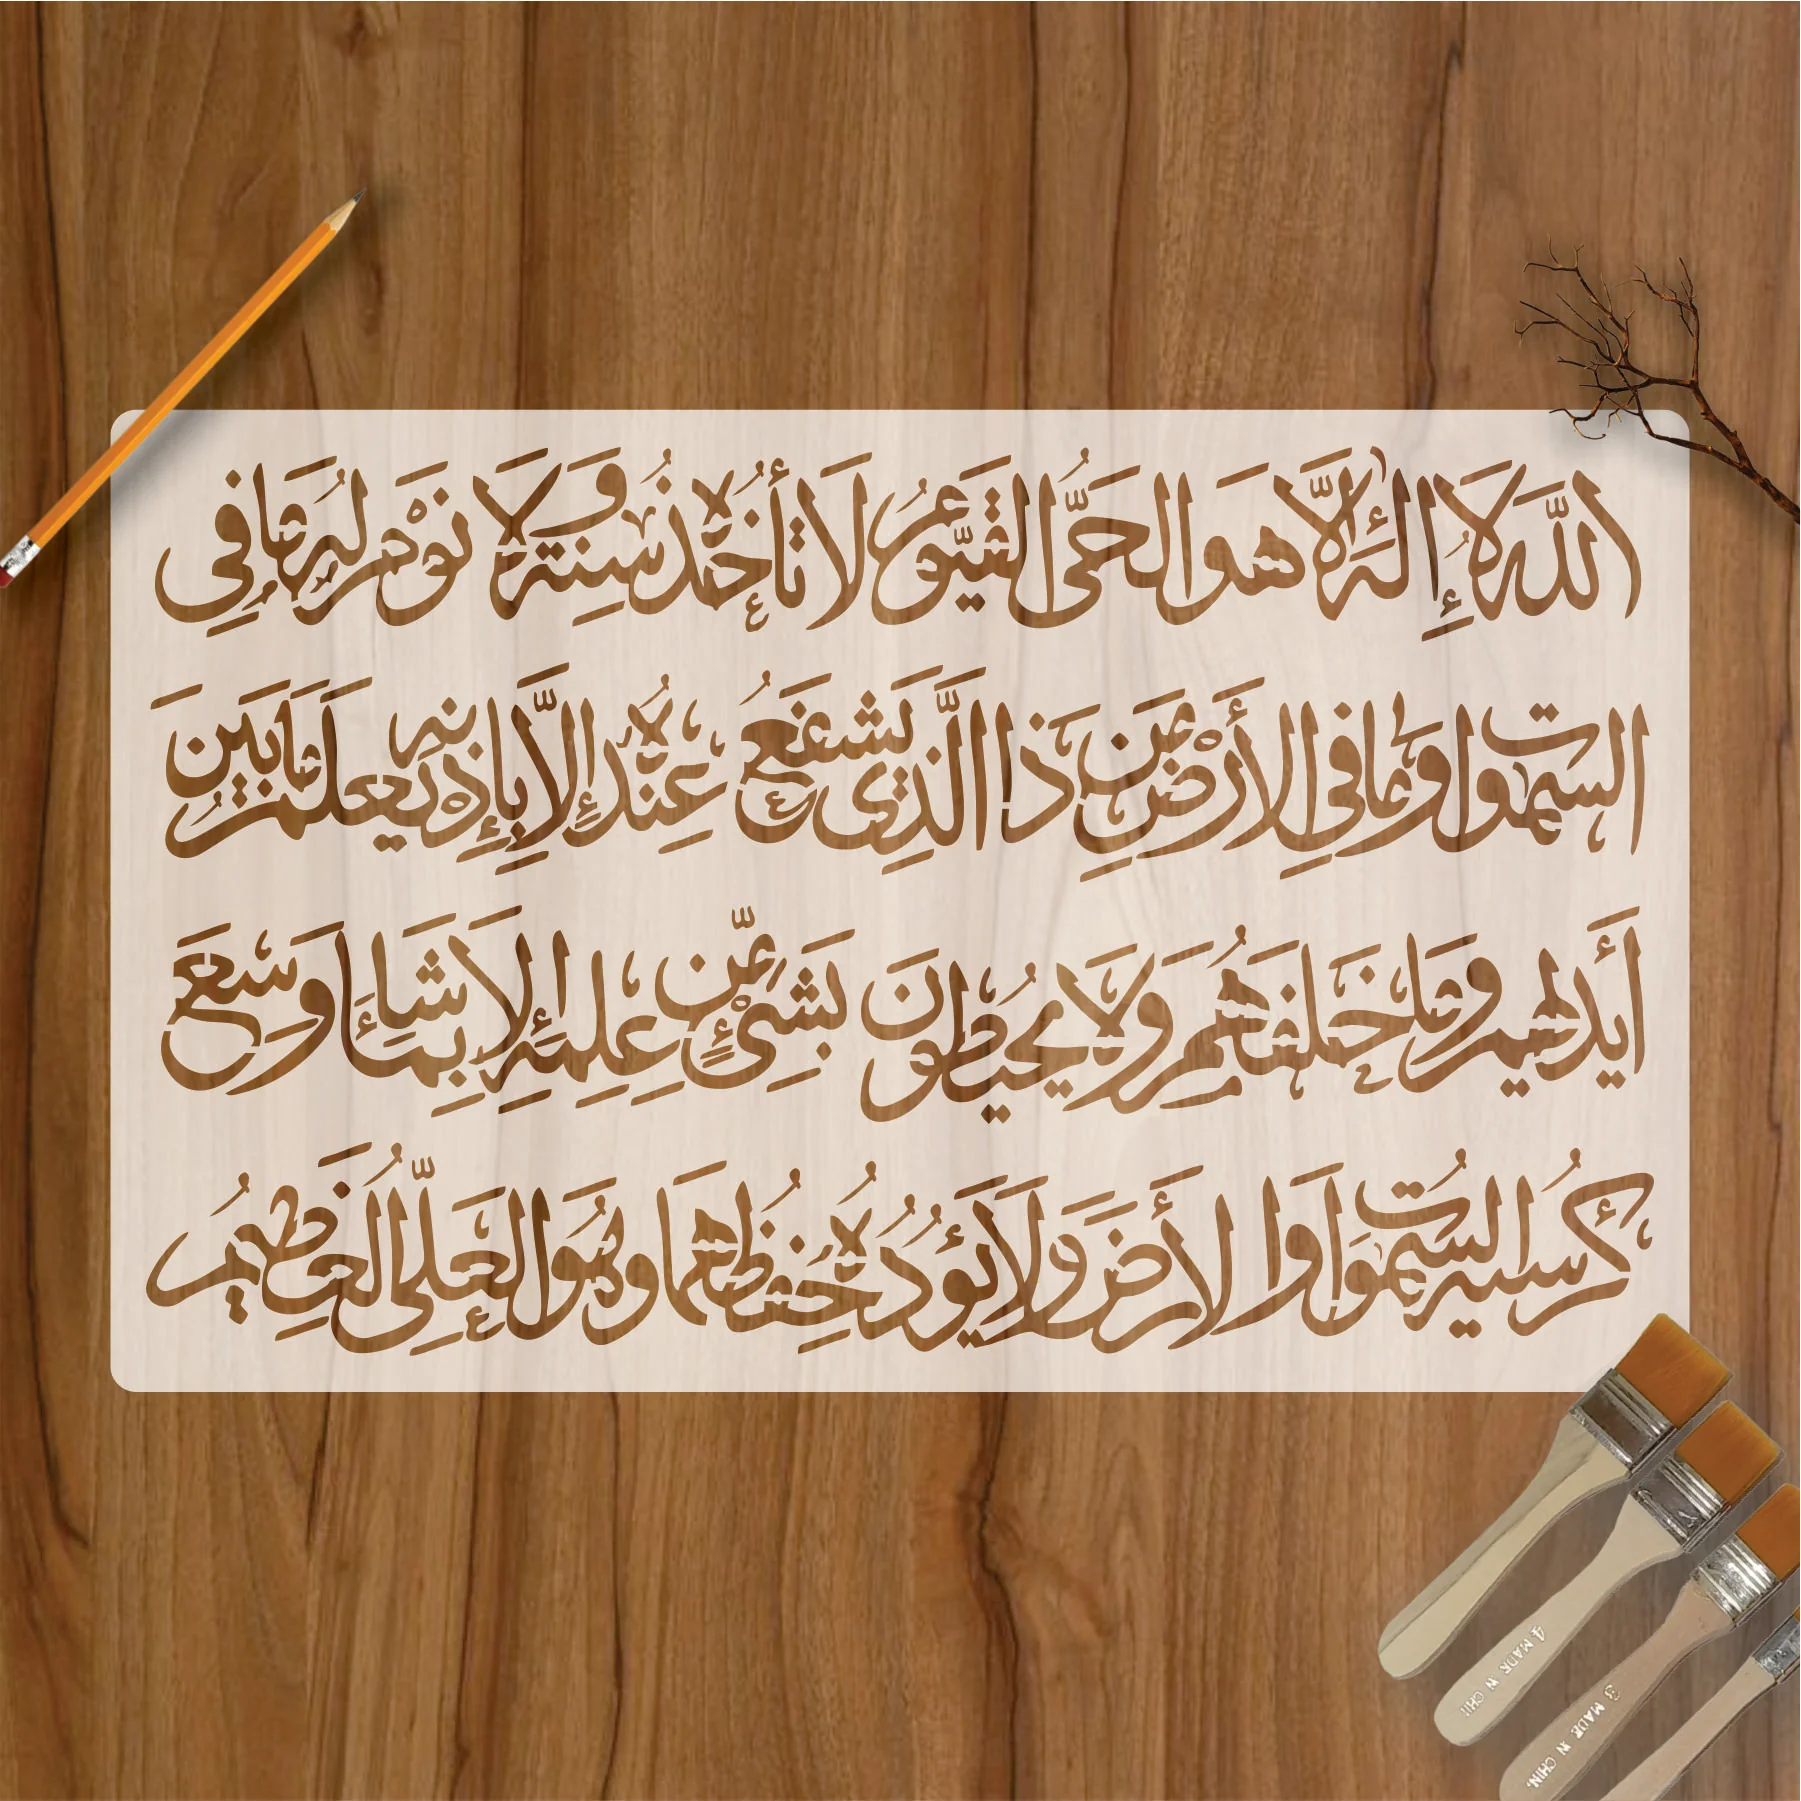 الله لا إله إلا هو الحي القيوم لا تأخذه سنة ولا نوم له ما في
السموات وما في الأرض من ذا الذي يشفع عنده إلا بإذنه يعلم ما بين
أيديهم وما خلفهم ولا يحيطون بشيء من علمه إلا بما شاء وسع
كرسيه السموات والأرض ولا يؤده حفظهما وهو العلي العظيم
4 MADE IN CHI
3 MADE IN CHIN